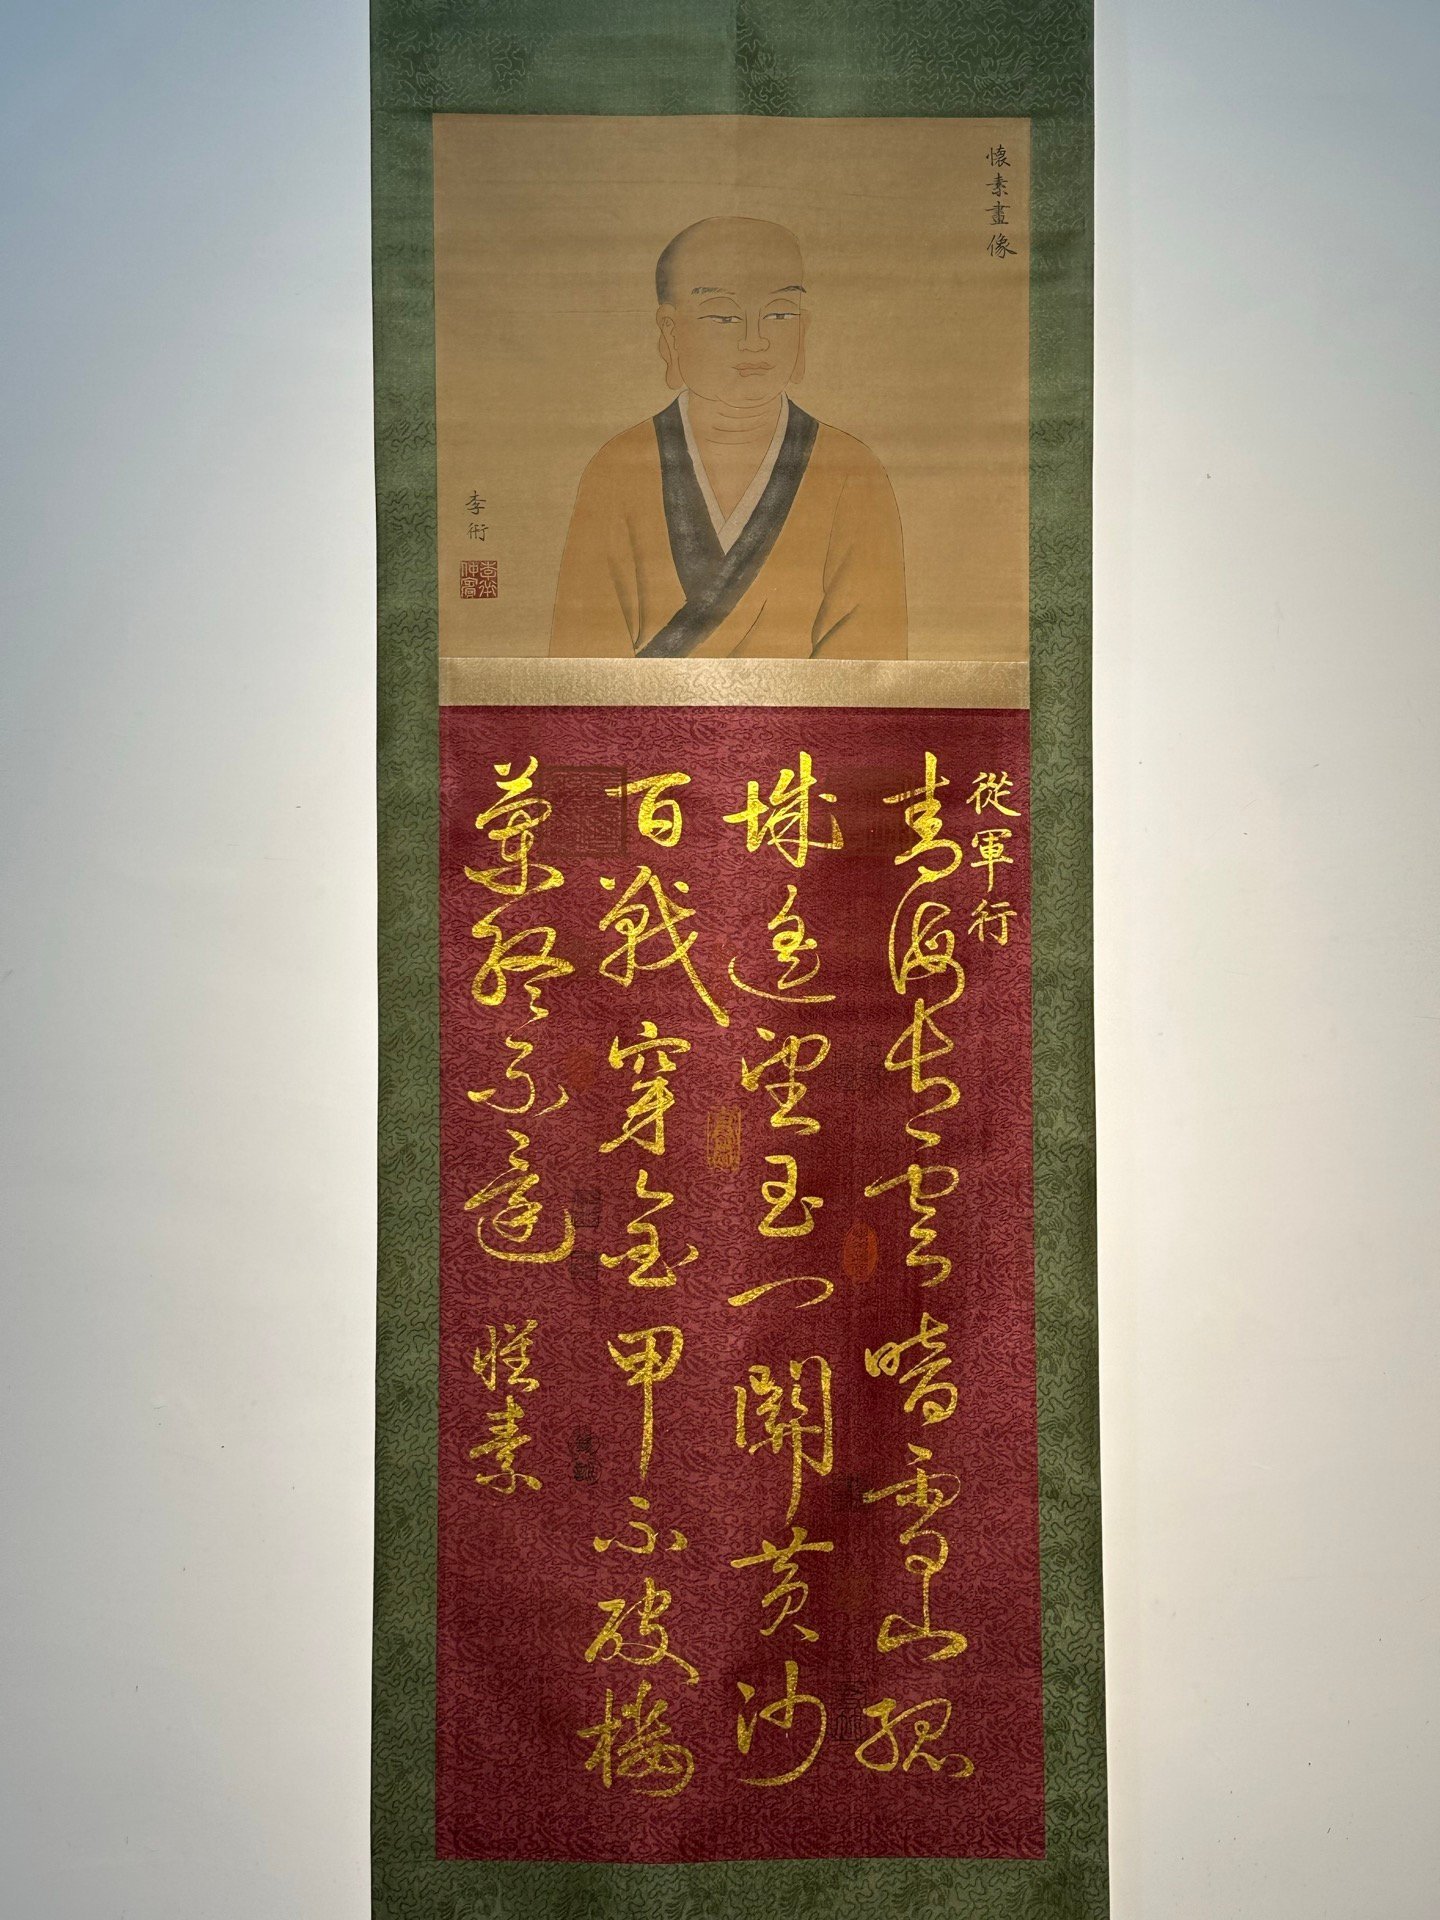 懷素畫像
李衎
從軍行
青海长雲暗雪山孤
城遙望玉门關黄沙
百戰穿金甲不破樓
蘭終不還
懷素